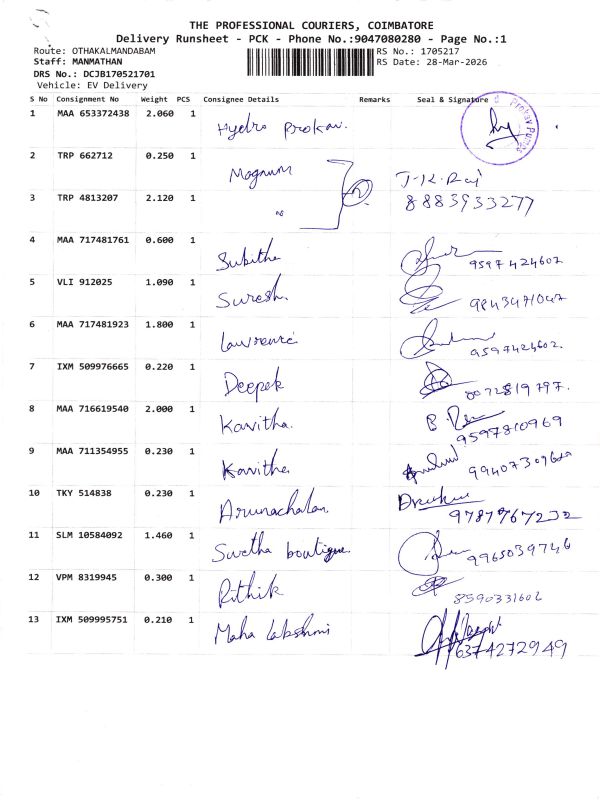 THE PROFESSIONAL COURIERS, COIMBATORE
Delivery Runsheet - PCK - Phone No.:9047080280 - Page No.:1
Route: OTHAKALMANDABAM RS No.: 1705217
Staff: MANMATHAN RS Date: 28-Mar-2026
DRS No.: DCJB170521701
Vehicle: EV Delivery
S No Consignment No Weight PCS Consignee Details Remarks Seal & Signature
1 MAA 653372438 2.060 1 Hydro Prokav.
2 TRP 662712 0.250 1 Magnum J.K. Raj
3 TRP 4813207 2.120 1 8883933277
4 MAA 717481761 0.600 1 Subitha 9597424602
5 VLI 912025 1.090 1 Suresh.
6 MAA 717481923 1.800 1 Lawrence 9597424602.
7 IXM 509976665 0.220 1 Deepek
8 MAA 716619540 2.000 1 Kavitha. 9597810969
9 MAA 711354955 0.230 1 Kavitha.
10 TKY 514838 0.230 1 Arunachalan. 9787967232
11 SLM 10584092 1.460 1 Swetha boutique. 9965039746
12 VPM 8319945 0.300 1 Rithik 8590331602
13 IXM 509995751 0.210 1 Maha Lakshmi 6374272949